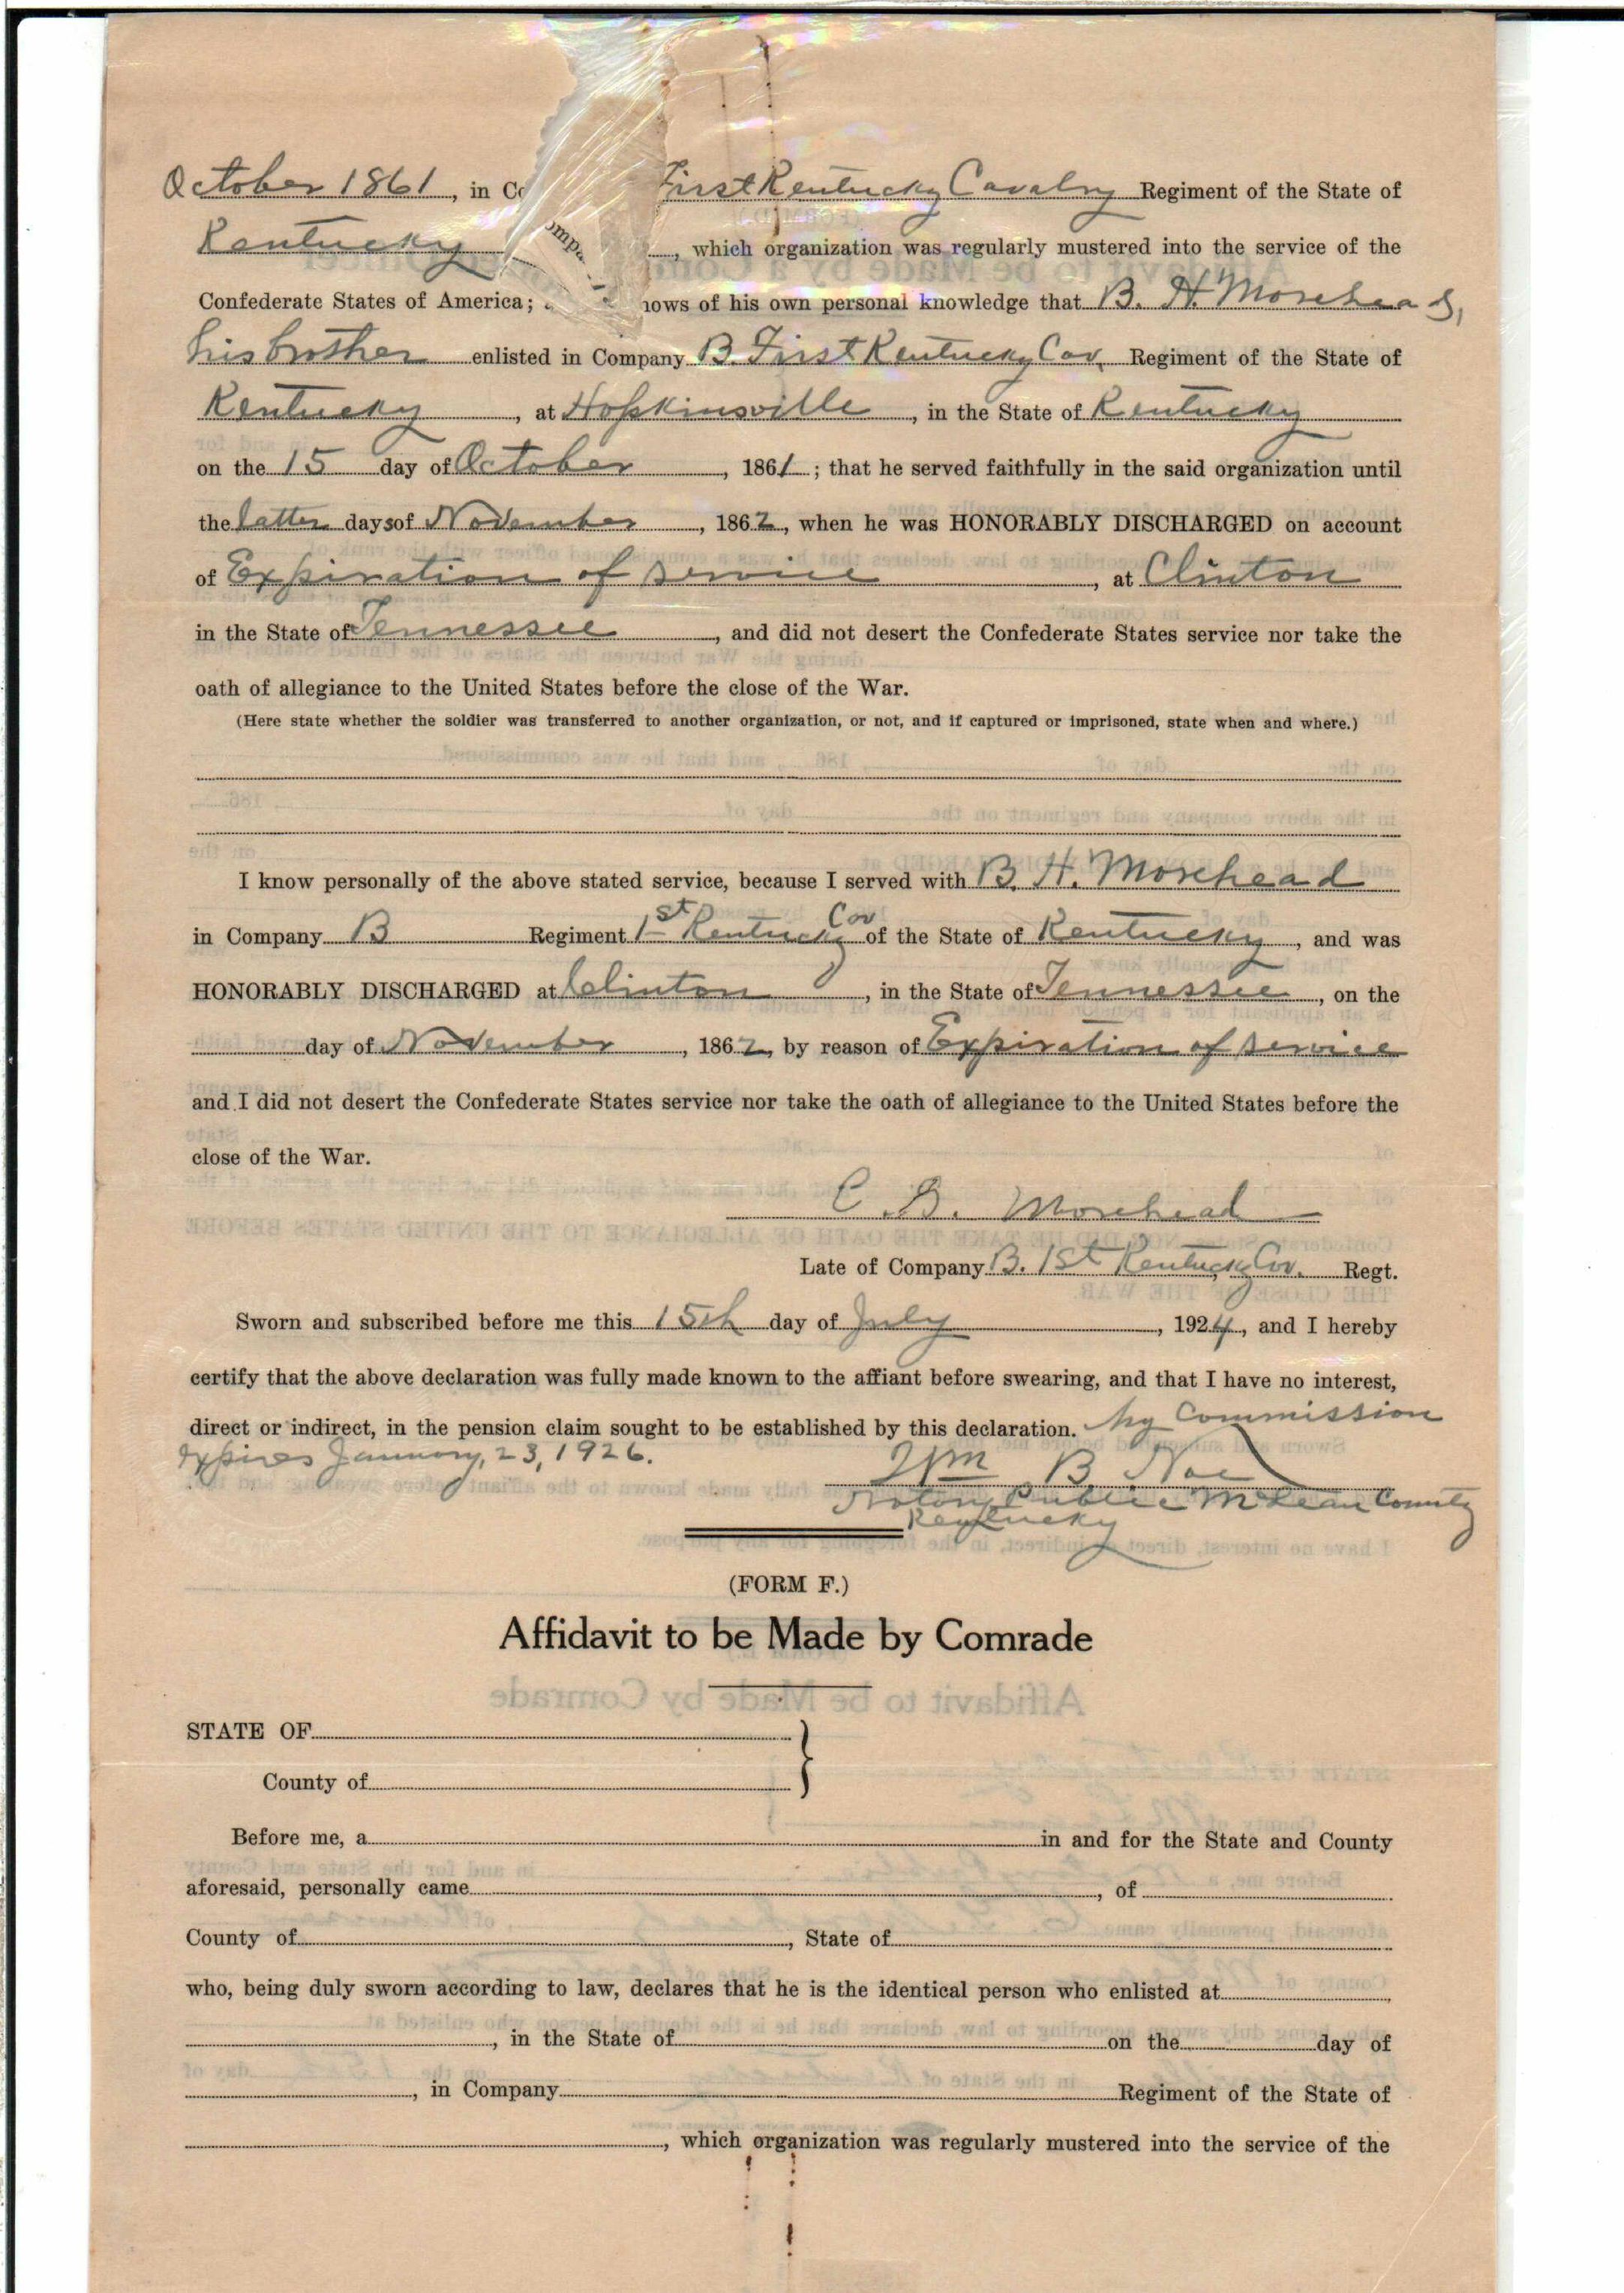 October 1861, in Co First Kentucky Cavalry Regiment of the State of
Kentucky, which organization was regularly mustered into the service of the
Confederate States of America; nows of his own personal knowledge that B. H. Morehead,
his brother enlisted in Company B. First Kentucky Cav. Regiment of the State of
Kentucky, at Hopkinsville, in the State of Kentucky
on the 15 day of October, 1861; that he served faithfully in the said organization until
the latter daysof November, 1862, when he was HONORABLY DISCHARGED on account
of Expiration of service, at Clinton
in the State of Tennessee, and did not desert the Confederate States service nor take the
oath of allegiance to the United States before the close of the War.
(Here state whether the soldier was transferred to another organization, or not, and if captured or imprisoned, state when and where.)
I know personally of the above stated service, because I served with B. H. Morehead
in Company B Regiment 1st Kentucky Cav of the State of Kentucky, and was
HONORABLY DISCHARGED at Clinton, in the State of Tennessee, on the
day of November, 1862, by reason of Expiration of service
and I did not desert the Confederate States service nor take the oath of allegiance to the United States before the
close of the War.
C. G. Morehead
Late of Company B. 1st Kentucky Cav. Regt.
Sworn and subscribed before me this 15th day of July, 1924, and I hereby
certify that the above declaration was fully made known to the affiant before swearing, and that I have no interest,
direct or indirect, in the pension claim sought to be established by this declaration. My Commission
expires January, 23, 1926.
Wm B Noe
Notory Public McLean County
Kentucky
(FORM F.)
Affidavit to be Made by Comrade
STATE OF
County of
Before me, a in and for the State and County
aforesaid, personally came, of
County of, State of
who, being duly sworn according to law, declares that he is the identical person who enlisted at
, in the State of on the day of
, in Company Regiment of the State of
, which organization was regularly mustered into the service of the